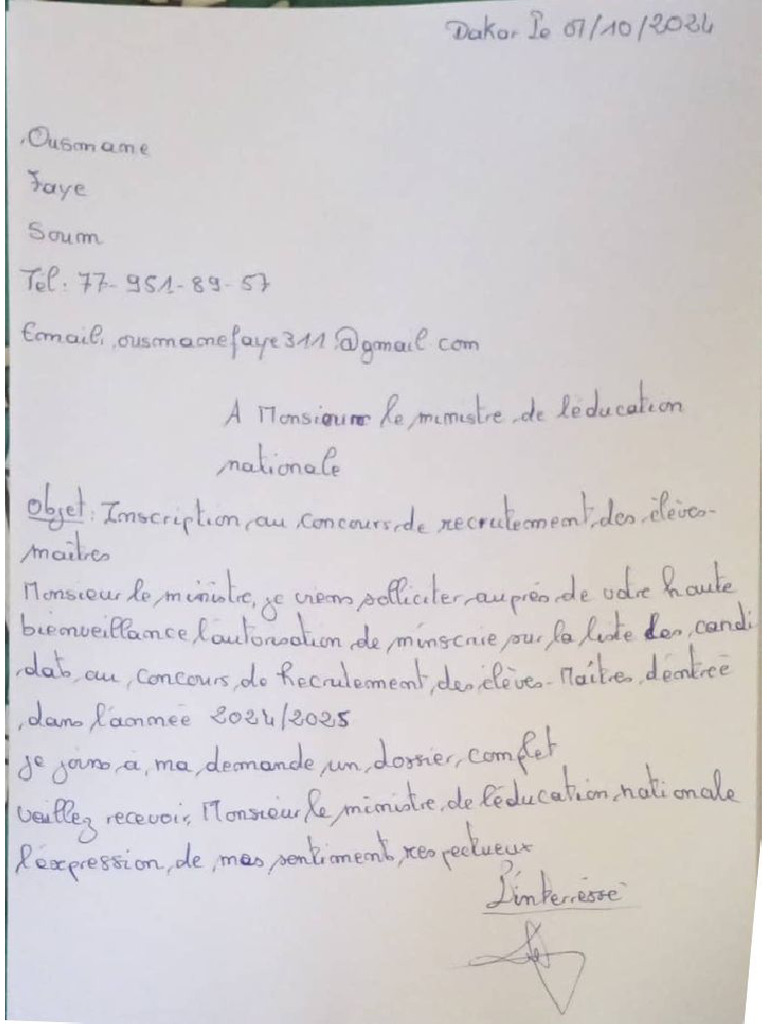 Dakar le 01/10/2024
Ousmane
Faye
Soum
Tél: 77-951-89-57
Email, ousmanefaye311@gmail.com
A Monsieur le ministre de l'éducation
nationale
Objet: Inscription au concours de recrutement des élèves-
maîtres
Monsieur le ministre, je viens solliciter auprès de votre haute
bienveillance l'autorisation de m'inscrire sur la liste des candi
dats au concours de Recrutement des élèves-Maîtres d'entrée
dans l'année 2024/2025
je joins a ma demande un dossier complet
veillez recevoir, Monsieur le ministre de l'éducation nationale
l'expression de mes sentiment respectueux
L'interressé